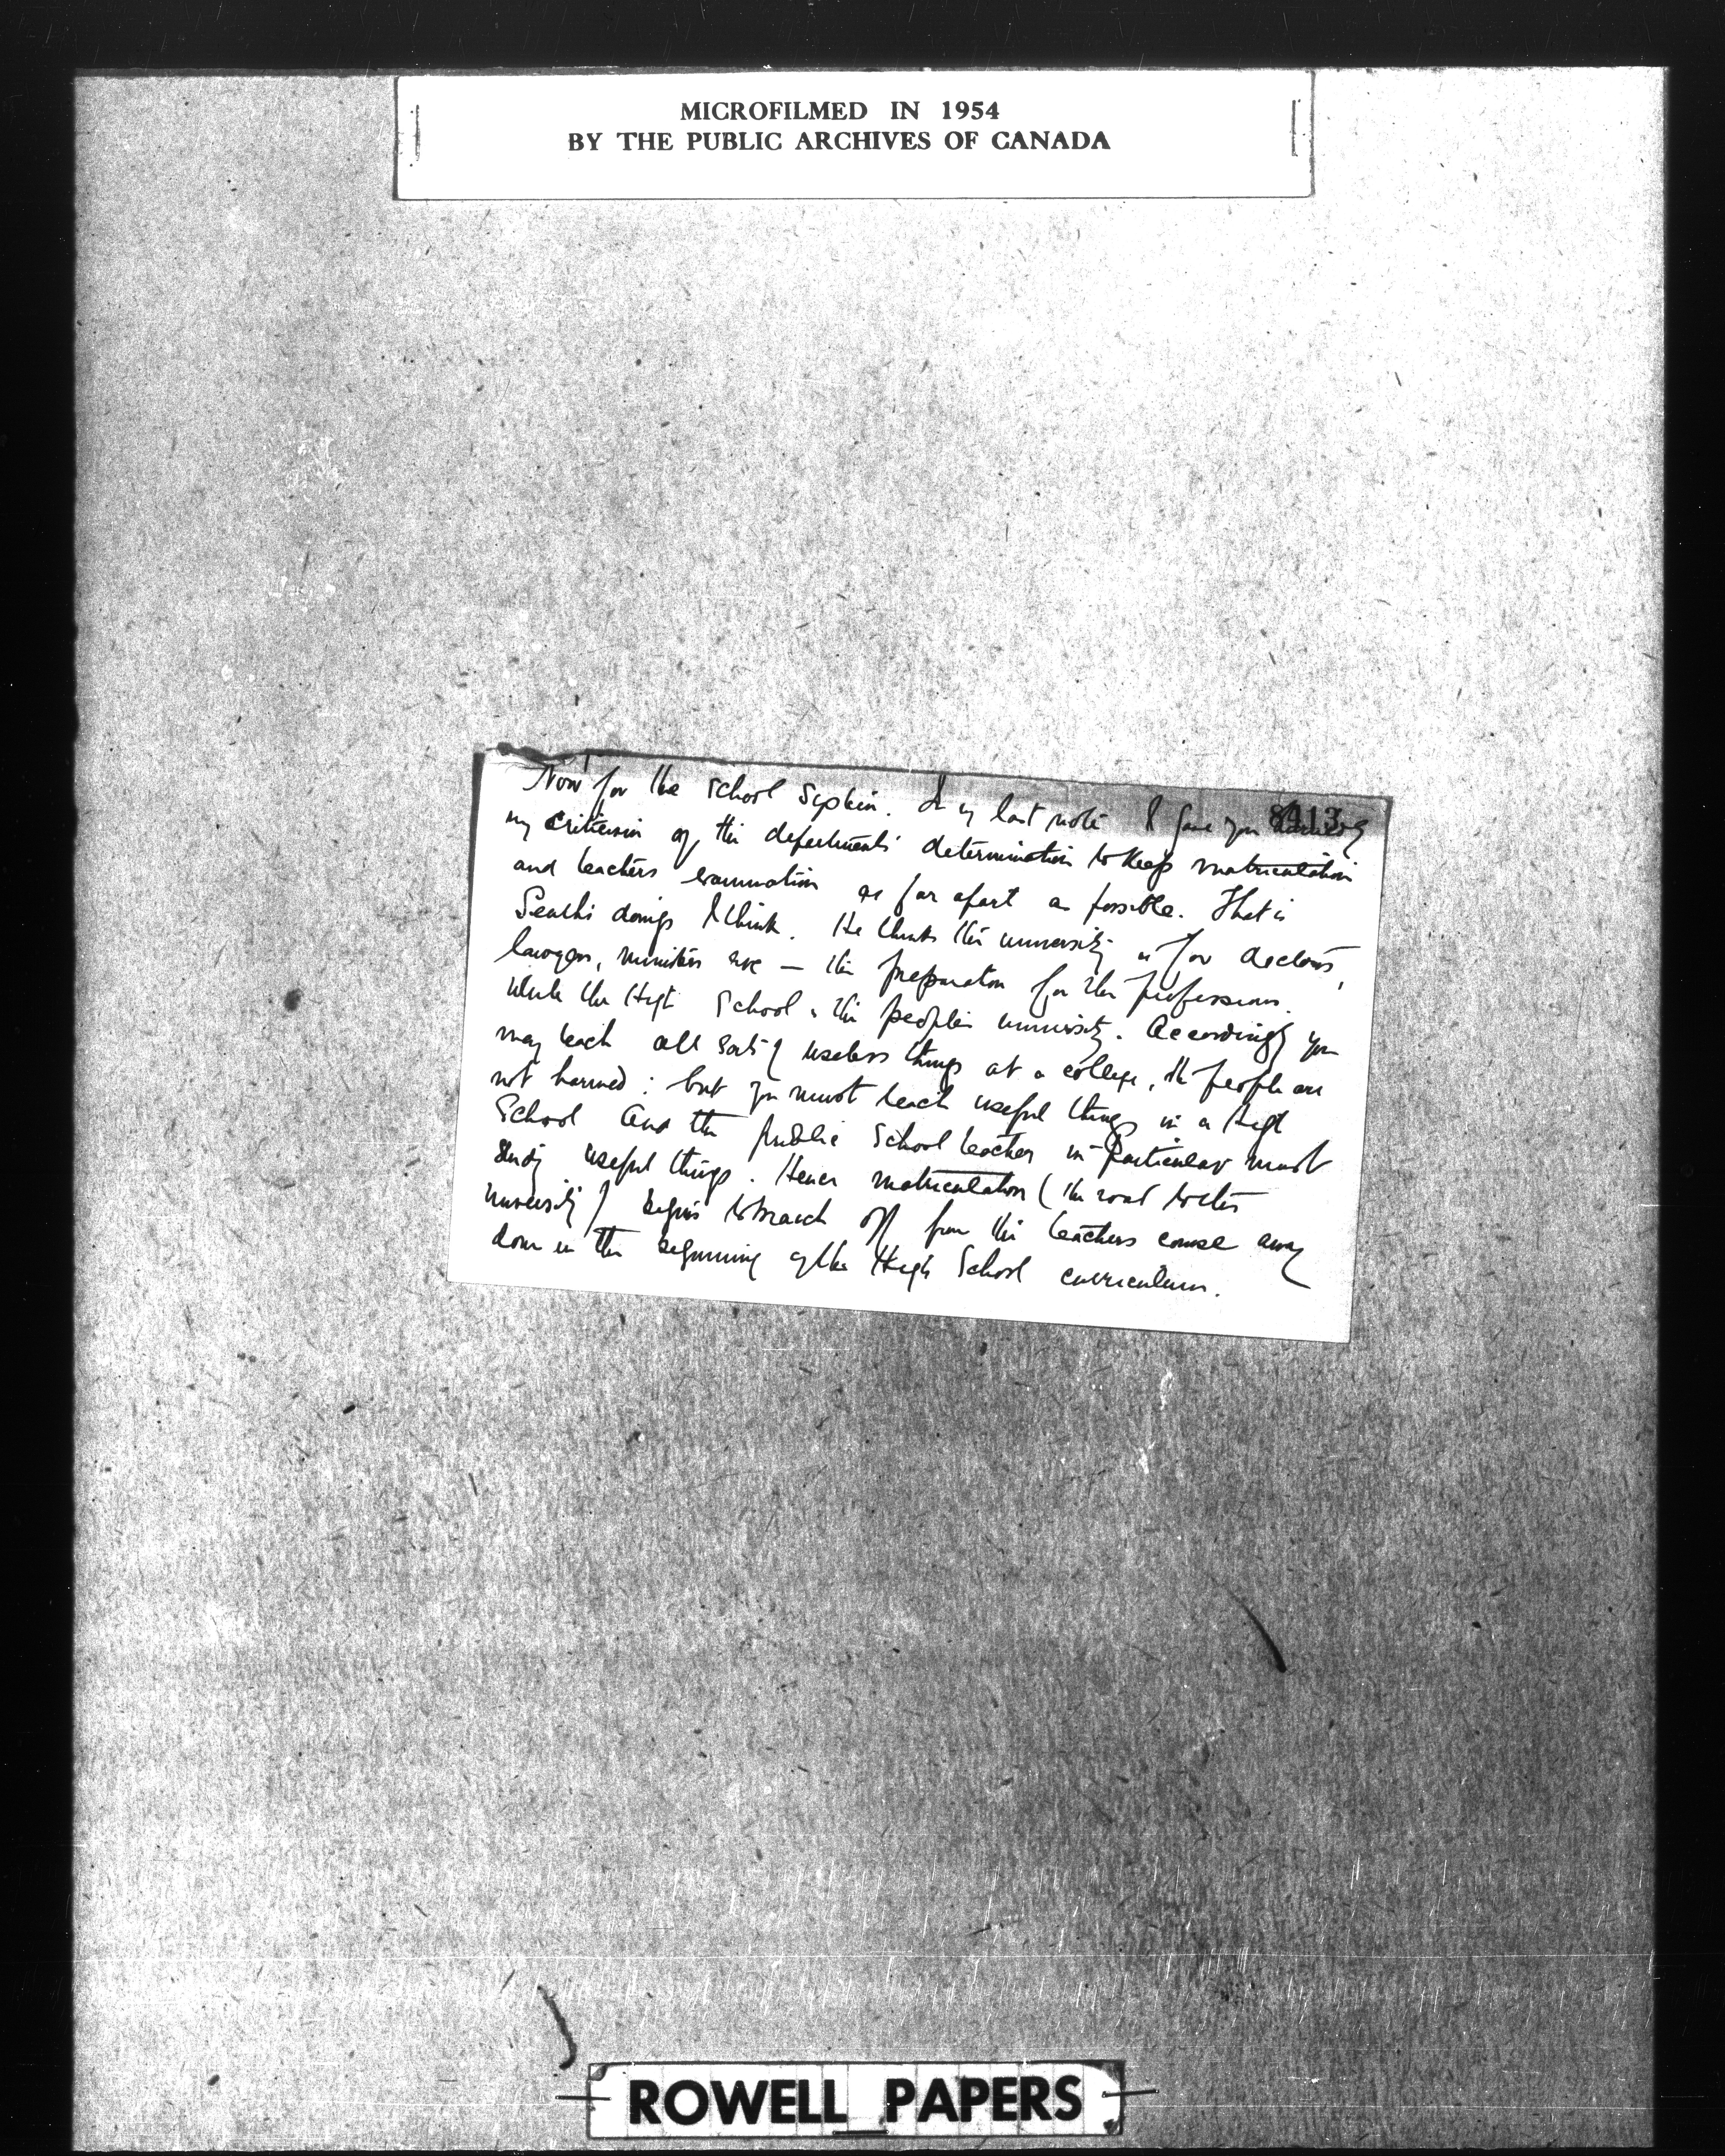 MICROFILMED IN 1954
BY THE PUBLIC ARCHIVES OF CANADA
8413
Now for the School System. In my last note I gave you
my criticism of the department's determination to keep matriculation
and teachers examination as far apart as possible. That is
Seath's doings I think. He thinks the university is for doctors,
lawyers, ministers etc — the preparation for the professions.
While the High School is the people's university. Accordingly you
may teach all sorts of useless things at a college, the people are
not harmed: but you must teach useful things in a High
School and the public school teacher in particular must
study useful things. Hence matriculation (the road to the
university) begins to branch off from the teachers course away
down in the beginning of the High School curriculum.
ROWELL PAPERS